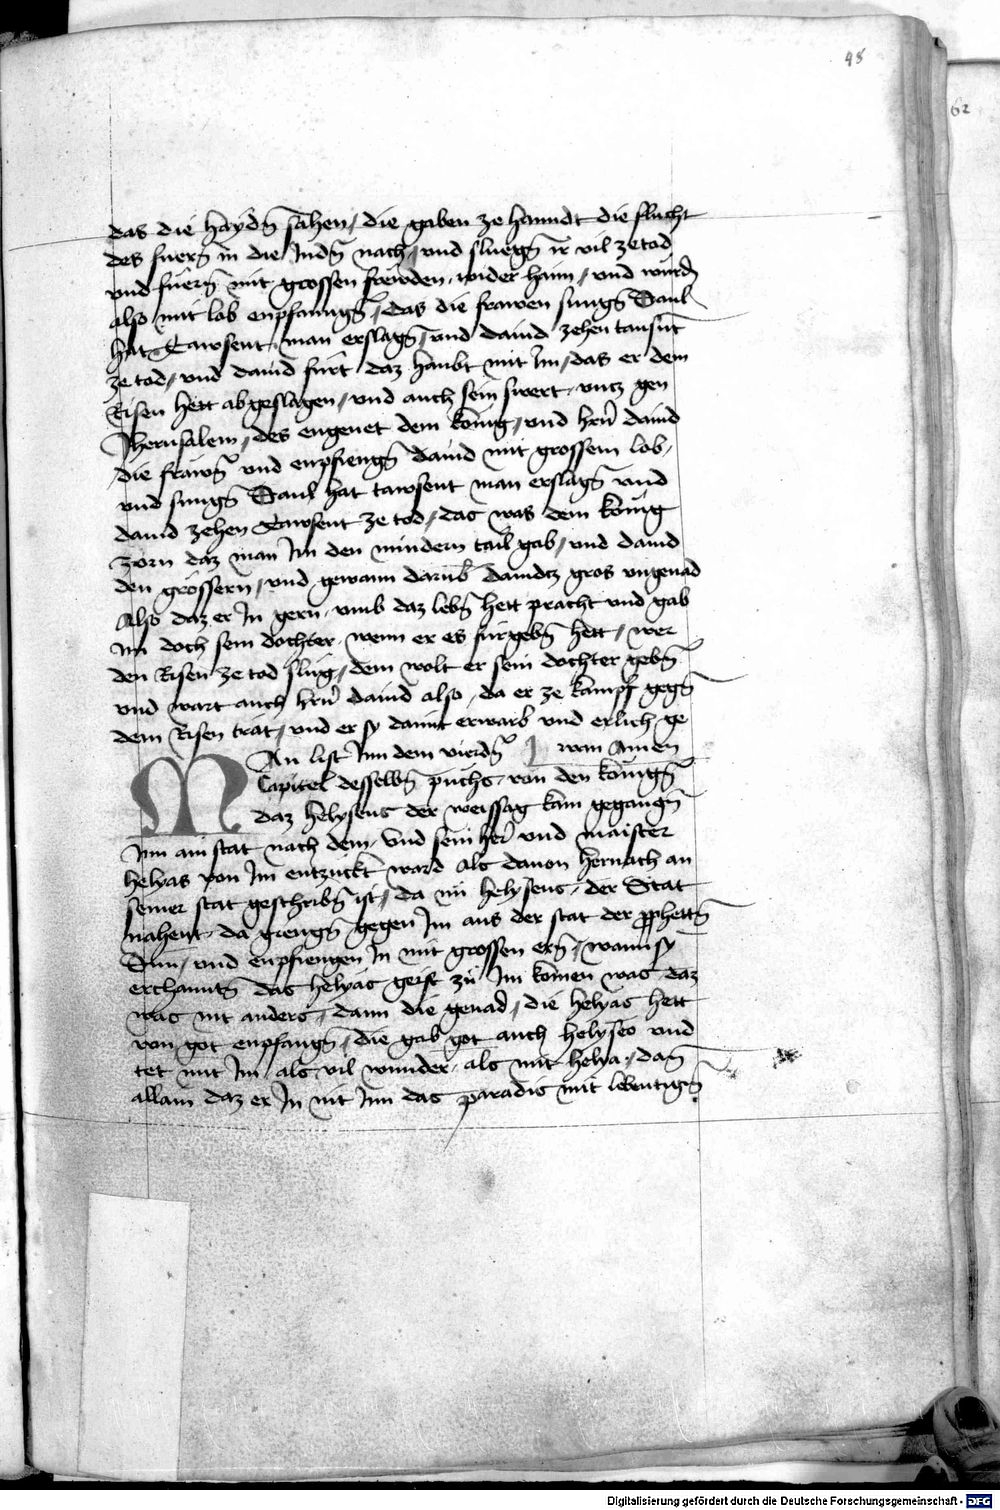 48
das die haydn̄ sahen / die gaben ze hanndt die flucht
des fuern̄ in die Judn̄ nach / vnd sluegn̄ ir vil ze tod
vnd fuern̄ mit grossen frewden wider haim / vnd wurdn̄
also mit lob enpfanngn̄ / das die frawen sungn̄ Saul
hat Tawsent man erslagn̄ / vnd dauid zehen tausnt
ze tod / vnd dauid furt daz haubt mit Im / das er dem
Risen hett abgeslagen / vnd auch sein swert vntz gen
Jherusalem / des engenet dem konig / vnd hrn̄ dauid
die frawn̄ vnd enpfiengn̄ dauid mit grossem lob /
vnd sungn̄ Saul hat tawsent man erslagn̄ vnd
dauid zehen Tawsent ze tod / das was dem konig
zorn daz man Im den mindern tail gab / vnd dauid
den grössern / vnd gewann darub̄ dauidtz gros vngenad
Also daz er In gern vmb daz lebn̄ hett pracht vnd gab
im doch sein dochter wenn er es fürgebn̄ hett / wer
den Risen ze tod slug / dem wolt er sein dochter gebn̄
vnd wart auch hrn̄ dauid also / da er ze kampf gegn̄
dem Risen trat / vnd er sy damit erwarb vnd erlich ge
wan Amen
MAn list Inn dem vierdn̄
Capitel desselbn̄ puchs von den konign̄
daz helyseus der weissag kam gegangn̄
Inn ain stat nach dem / vnd sein her̄ vnd maister
helyas von Im entzuckt ward als dauon hernach an
seiner stat geschribn̄ ist / da nu helyseus der Stat
nahent / da giengn̄ gegen Im aus der stat der prophettn̄
Sun / vnd enpfiengen In mit grossen ern̄ / wann sy
erchanntn̄ das helyas geist zu Im komen was daz
was nit anders / dann die genad / die helyas hett
von got enpfangn̄ / die gab got auch helyseo vnd
tet mit Im als vil wunder als mit helya / dan̄
allain daz er In nit Inn das paradis mit lebentign̄
62
Digitalisierung gefördert durch die Deutsche Forschungsgemeinschaft - DFG